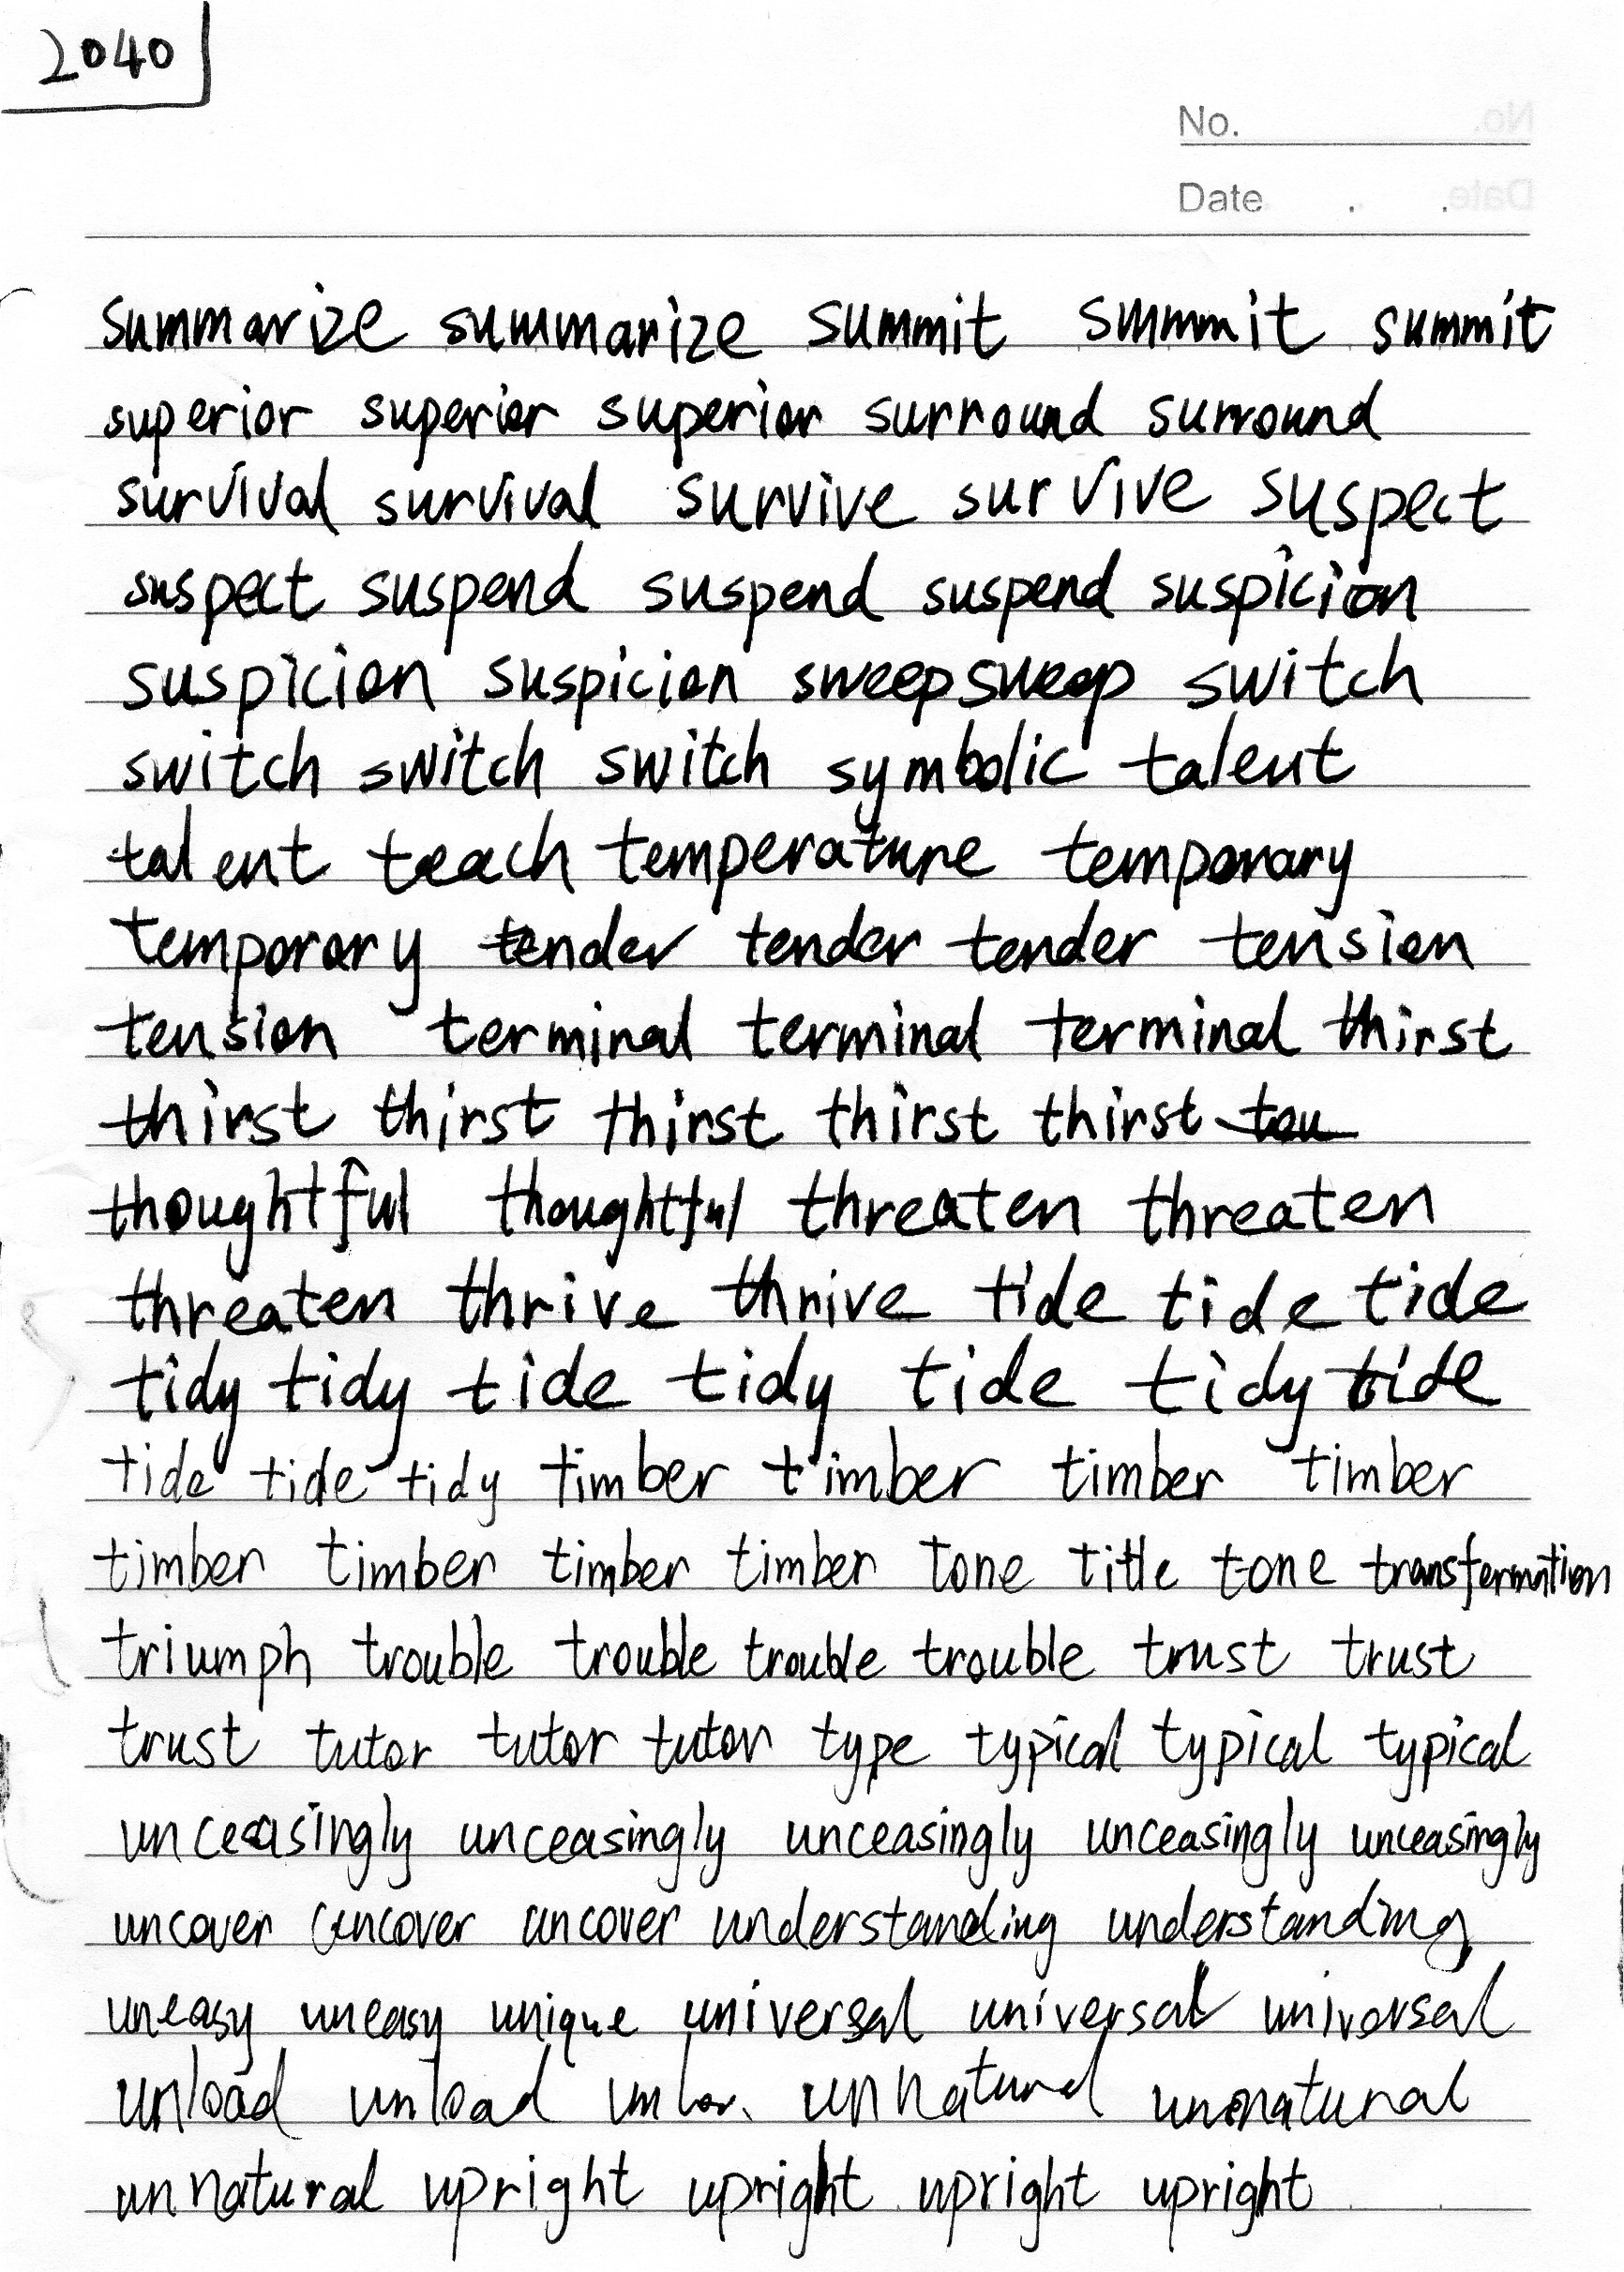 2040
No.
Date . .
summarize summarize summit summit summit
superior superior superior surround surround
survival survival survive survive suspect
suspect suspend suspend suspend suspicion
suspicion suspicion sweep sweep switch
switch switch switch symbolic talent
talent teach temperature temporary
temporary tender tender tender tension
tension terminal terminal terminal thirst
thirst thirst thirst thirst thirst
thoughtful thoughtful threaten threaten
threaten thrive thrive tide tide tide
tidy tidy tide tidy tide tidy tide
tide tide tidy timber timber timber timber
timber timber timber timber tone title tone transformation
triumph trouble trouble trouble trouble trust trust
trust tutor tutor tutor type typical typical typical
unceasingly unceasingly unceasingly unceasingly unceasingly
uncover uncover uncover understanding understanding
uneasy uneasy unique universal universal universal
unload unload unnatural unnatural
unnatural upright upright upright upright